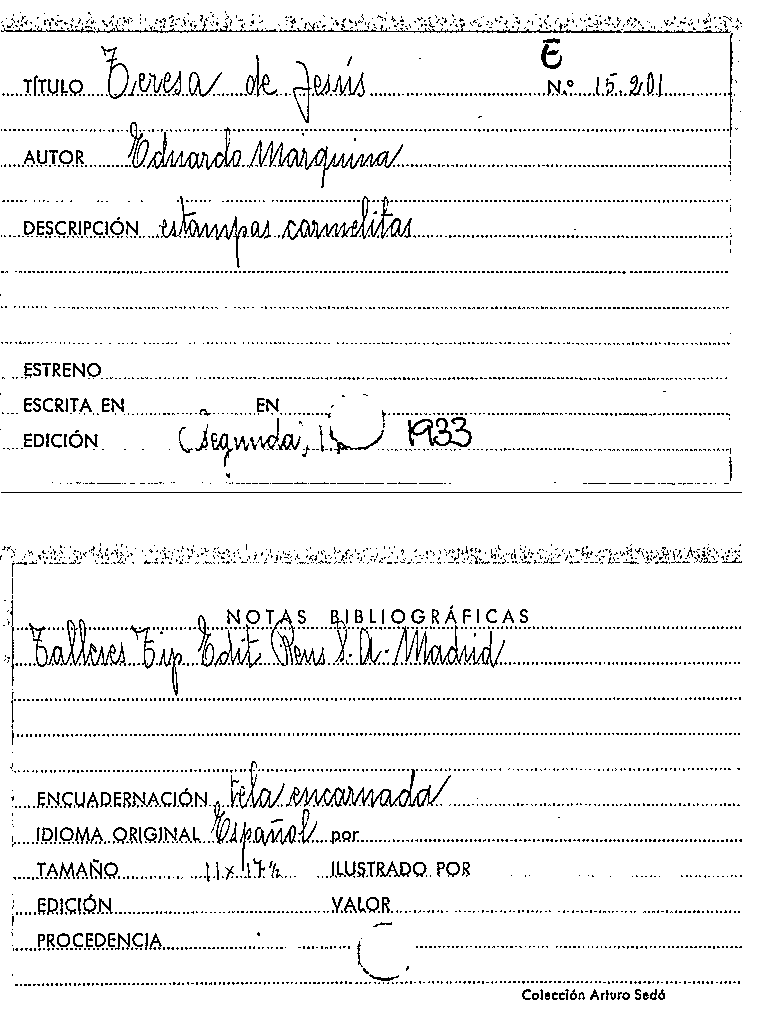 E
TÍTULO Teresa de Jesús N.º 15.201
AUTOR Eduardo Marquina
DESCRIPCIÓN estampas carmelitas
ESTRENO
ESCRITA EN EN
EDICIÓN (Segunda) 1933
NOTAS BIBLIOGRÁFICAS
Talleres Tip Edit Reus S.A. Madrid
ENCUADERNACIÓN tela encarnada
IDIOMA ORIGINAL Español por
TAMAÑO 11 x 17½ ILUSTRADO POR
EDICIÓN VALOR
PROCEDENCIA
Colección Arturo Sedó